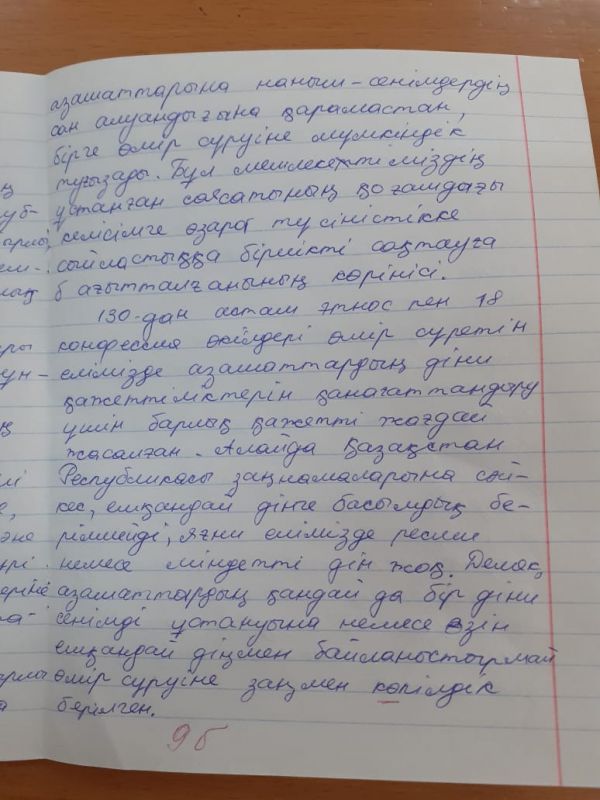 азаматтарына наным-сенімдердің
сан алуандығына қарамастан,
бірге өмір сүруіне мүмкіндік
туғызары. Бұл мемлекеттіміздің
ұстанған саясатының қоғамдағы
келісімге өзара түсіністікке
сыйластыққа бірлікті сақтауға
бағытталғанының көрінісі.
130-дан астам этнос пен 18
конфессия өкілдері өмір сүретін
елімізде азаматтардың діни
қажеттіліктерін қанағаттандыру
үшін барлық қажетті жағдай
жасалған. Алайда Қазақстан
Республикасы заңнамаларына сәй-
кес, ешқандай дінге басымдық бе-
рілмейді, яғни елімізде ресми
немесе міндетті дін жоқ. Демек,
азаматтардың қандай да бір діни
сенімді ұстануына немесе өзін
ешқандай дінмен байланыстырмай
өмір сүруіне заңмен кепілдік
берілген.
9б